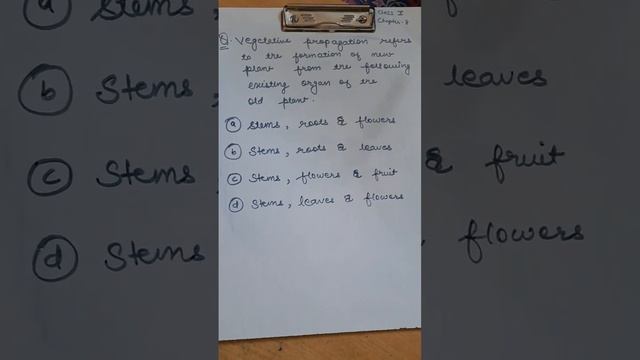 Class X
Chapter-8
Q. Vegetative propagation refers
to the formation of new
plant from the following
existing organ of the
old plant.
(a) Stems, roots & flowers
(b) Stems, roots & leaves
(c) Stems, flowers & fruit
(d) Stems, leaves & flowers
(a) Stems
(b) Stems, leaves
(c) Stems, & fruit
(d) Stems, flowers